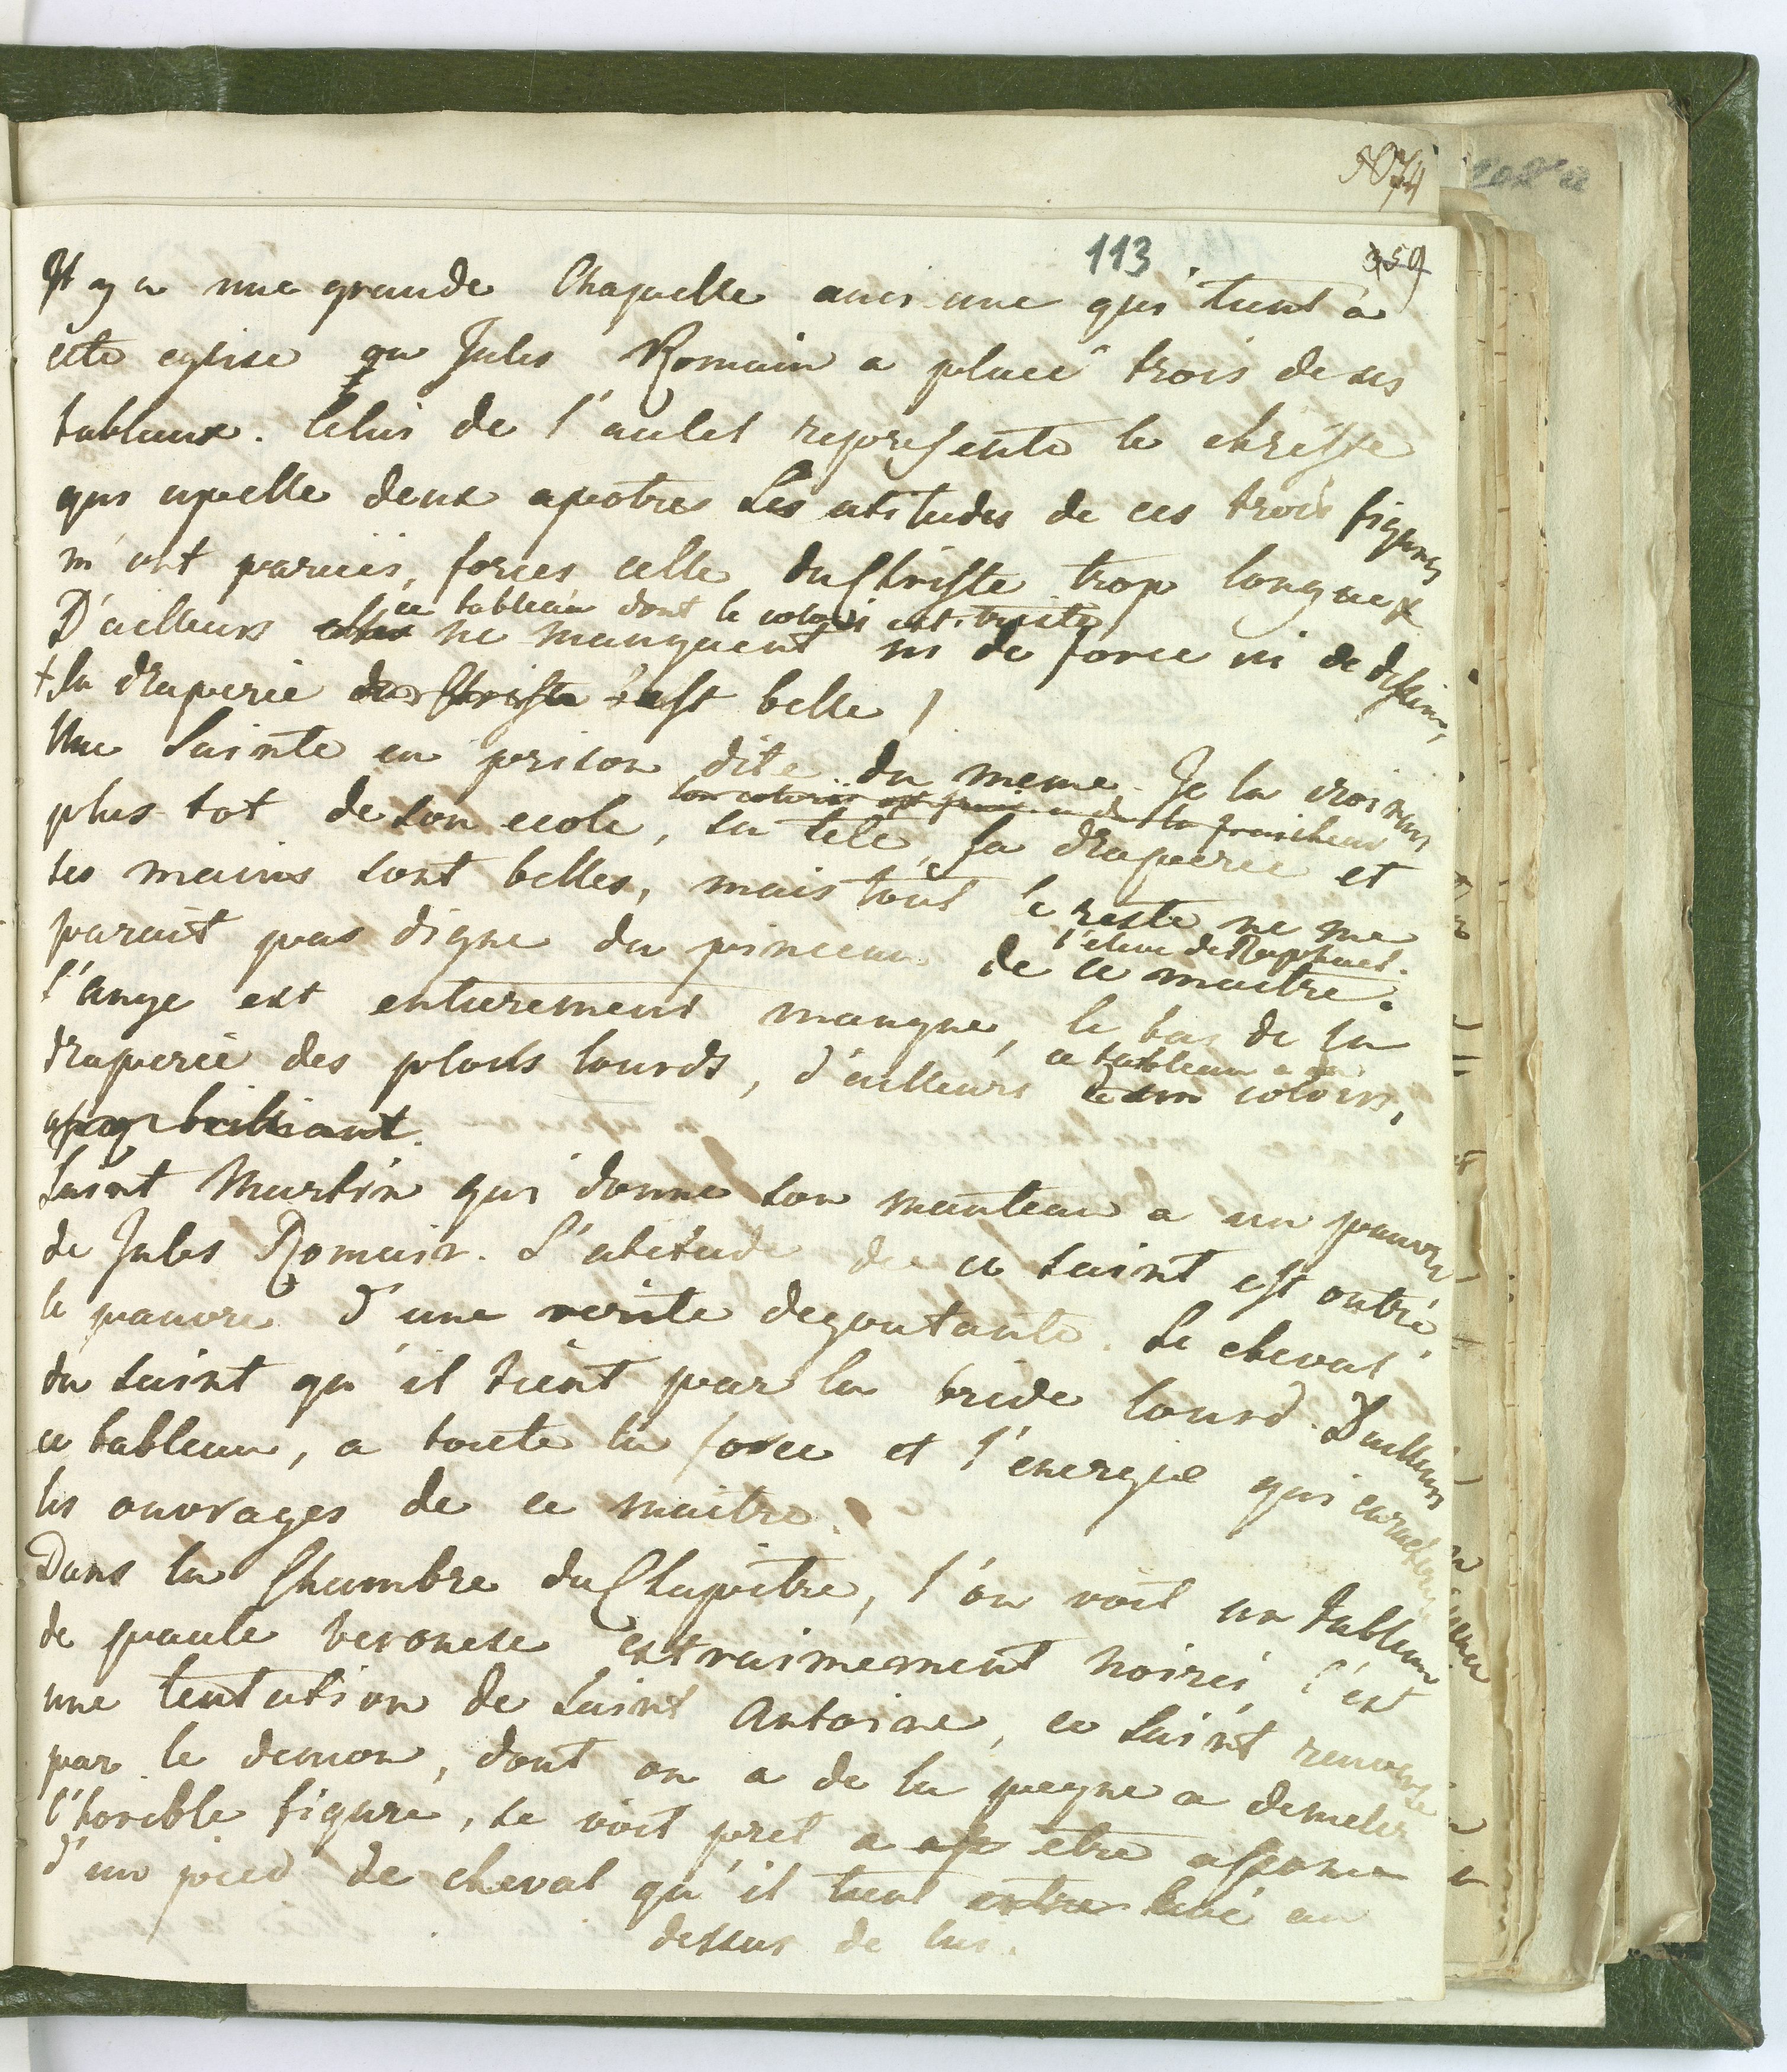 5074
113
359
Il y a une grande Chapelle ancienne qui tient à
cete eglise ou Jules Romain a placé trois de ses
tableaux. Celui de l'autel represente le christe
qui apelle deux apotres Les atitudes de ces trois figures
m'ont parues, forces celle du Christe trop longue +
ce tableau dont le coloris est triste
D'ailleurs elles ne manquent ni de force ni de dessin,
+ la draperie du Christe est belle /
Une Sainte en prison dite du meme. Je la croirais
son coloris est frais a de la fraicheur
plus tot de son ecole, sa tete, sa draperie et
ses mains sont belles, mais tout le reste ne me
l'eleve de Raphael.
parait pas digne du pinceau de ce maitre.
l'ange est entierement manqué, le bas de la
draperie des plus lourds, d'ailleurs
ce tableau a
le son coloris,
brilliant.
Saint Martin qui donne son manteau a un pauvre
de Jules Romain. L'atitude de ce saint est outré
le pauvre d'une verite degoutante. Le cheval
du saint qu'il tient par la bride lourd. D'ailleurs
ce tableau, a toute la force et l'energie qui caracterise
les ouvrages de ce maitre.
Dans la Chambre du Chapitre, l'on voit un tableau
de paule veronese extraimement noirci, c'est
une tentation de Saint Antoine, ce Saint renversé
par le demon, dont on a de la peyne a demeler
l'horible figure, se voit pret a etre assomé
d'un pied de cheval qu'il tient entre levé au
dessus de lui.